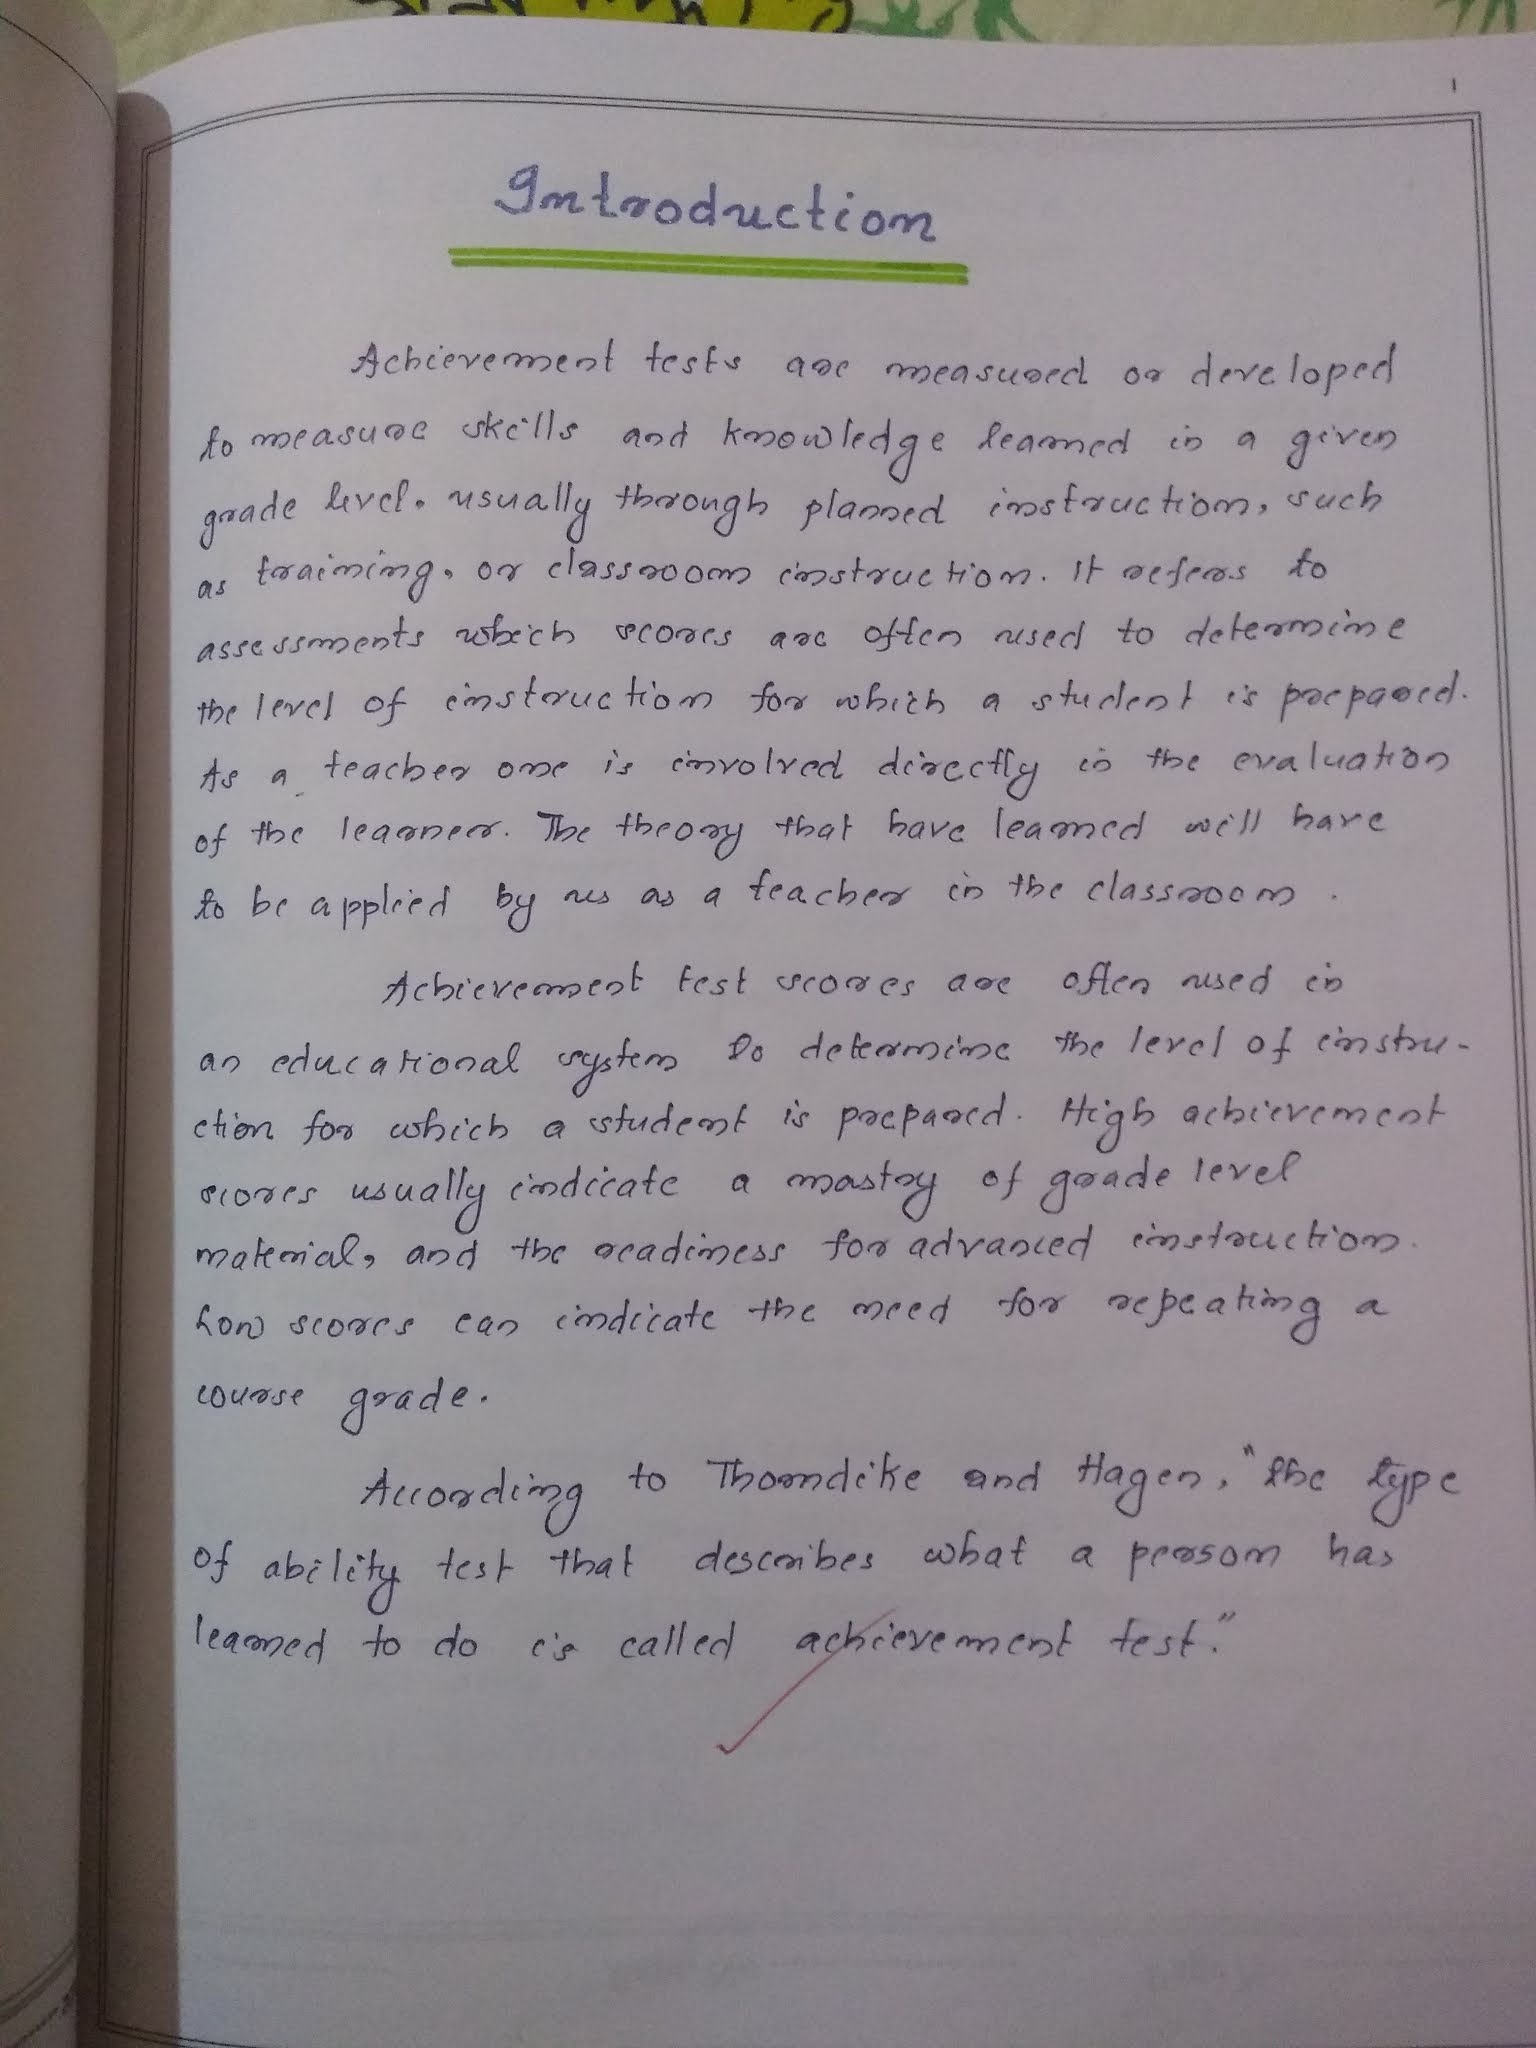 1
Introduction
Achievement tests are measured or developed
to measure skills and knowledge learned in a given
grade level, usually through planned instruction, such
as training, or classroom instruction. It refers to
assessments which scores are often used to determine
the level of instruction for which a student is prepared.
As a teacher one is involved directly in the evaluation
of the learner. The theory that have learned will have
to be applied by us as a teacher in the classroom.
Achievement test scores are often used in
an educational system to determine the level of instru-
ction for which a student is prepared. High achievement
scores usually indicate a mastry of grade level
material, and the readiness for advanced instruction.
Low scores can indicate the need for repeating a
course grade.
According to Thorndike and Hagen, "the type
of ability test that describes what a person has
learned to do is called achievement test."